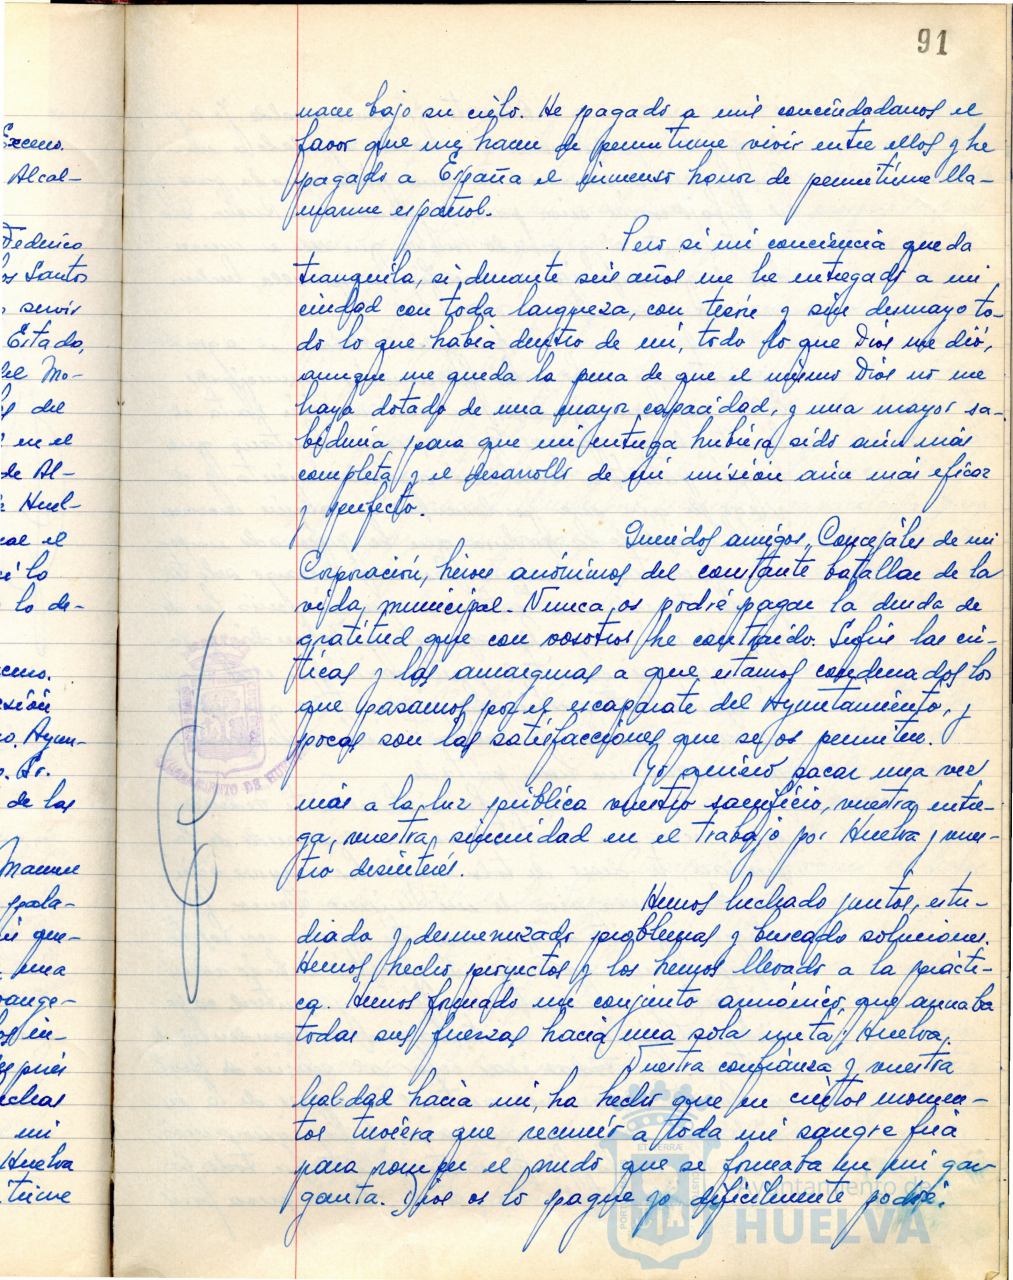 91
nace bajo su cielo. He pagado a mis conciudadanos el
favor que me hacen de permitirme vivir entre ellos y he
pagado a España el inmenso honor de permitirme lla-
marme español.
Pero si mi conciencia queda
tranquila, si durante seis años me he entregado a mi
ciudad con toda largueza, con tesón y sin desmayo to-
do lo que había dentro de mí, todo lo que Dios me dió,
aunque me queda la pena de que el mismo Dios no me
haya dotado de una mayor capacidad, y una mayor sa-
biduría para que mi entrega hubiera sido aún más
completa y el desarrollo de mi misión aún más eficaz
y perfecto.
Queridos amigos, Concejales de mi
Corporación, héroes anónimos del constante batallar de la
vida municipal. Nunca os podré pagar la deuda de
gratitud que con vosotros he contraido. Sufrir las crí-
ticas y las amarguras a que estamos condenados los
que pasamos por el escaparate del Ayuntamiento, y
pocas son las satisfacciones que se os permiten.
Yo quiero sacar una vez
más a la luz pública vuestro sacrificio, vuestra entre-
ga, vuestra sinceridad en el trabajo por Huelva y vues-
tro desinterés.
Hemos luchado juntos, estu-
diado y desmenuzado problemas y buscado soluciones.
Hemos hecho proyectos y los hemos llevado a la prácti-
ca. Hemos formado un conjunto armónico que aunaba
todas sus fuerzas hacia una sola meta; Huelva.
Vuestra confianza y vuestra
lealtad hacia mi, ha hecho que en ciertos momen-
tos tuviera que recurrir a toda mi sangre fría
para romper el nudo que se formaba en mi gar
ganta. Dios os lo pague yo dificilmente podré.
Excmo.
Alcal-
Federico
los Santos
servir
Estado,
del Mo-
del
en el
de Al-
Huel-
lo
lo de-
Ayun-
Sr.
de las
pala-
que-
una
mi
Huelva
Ayuntamiento de
HUELVA